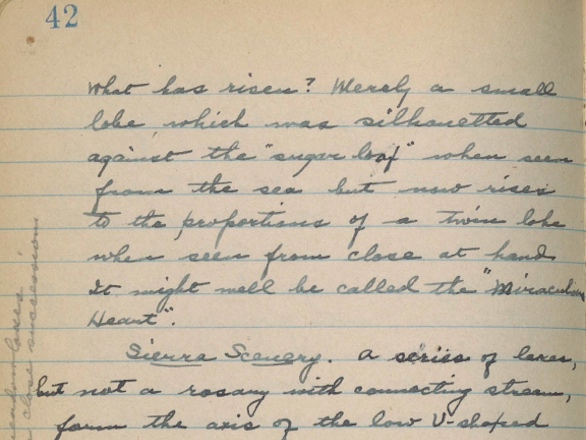 42
What has risen? Merely a small
lobe which was silhouetted
against the "sugar loaf" when seen
from the sea but now rises
to the proportions of a twin lobe
when seen from close at hand
It might well be called the "Miraculous
Heart".
Sierra Scenery. A series of lakes,
but not a rosary with connecting stream,
form the axis of the low U-shaped
close succession